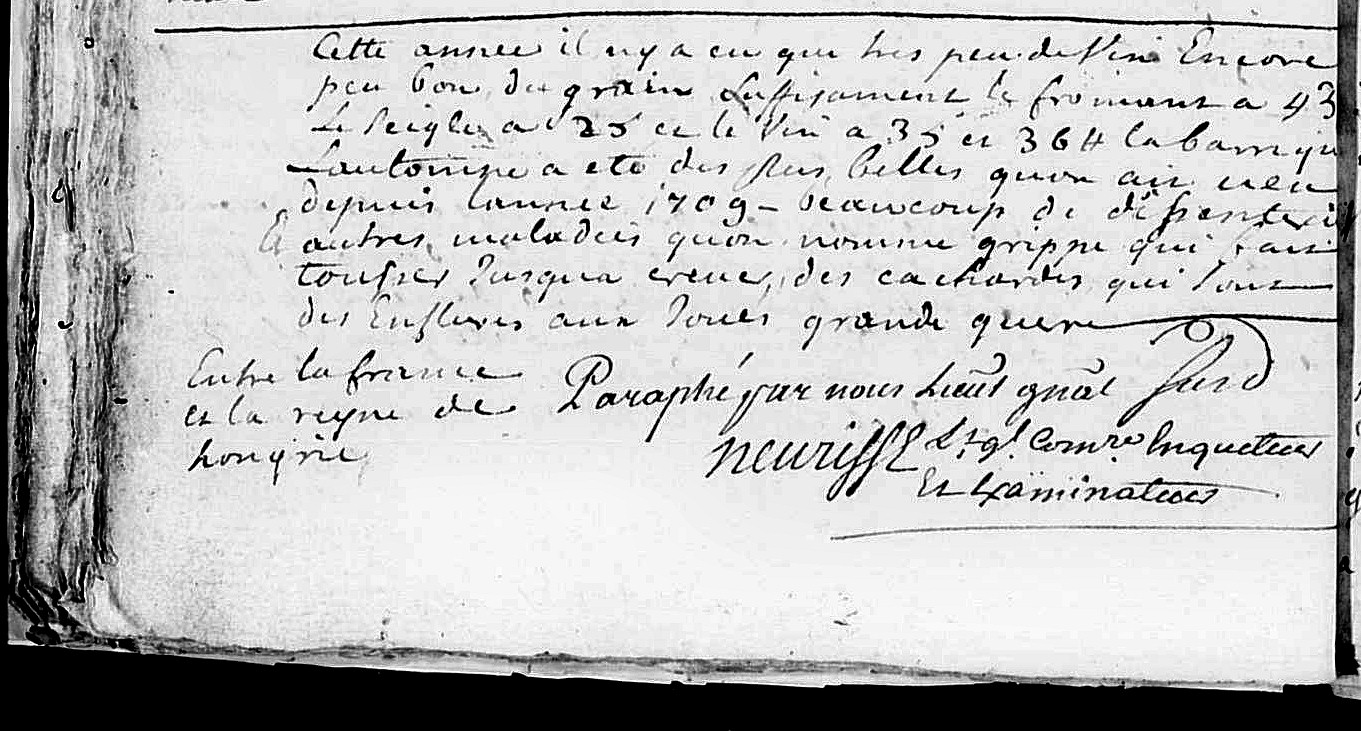 Cette année il ny a eu que tres peu de Vin Encore
peu bon, du grain suffisament le fromant a 43
Le Seigle a 25 et le Vin a 35 et 36 # la barrique
Lautomne a eté des plus belles quon ait veu
depuis lannee 1709 - beaucoup de dissenterie
Et autres maladies quon nomme grippe qui fait
tousser Jusqua crever, des cachardes qui sont
des Enflures aux Joues grande guerre
Entre la france
et la reyne de
hongrie
Paraphé par nous Lieut gnâl
neurisse Lt gl. Comre Inquetteur
Et Examinateur